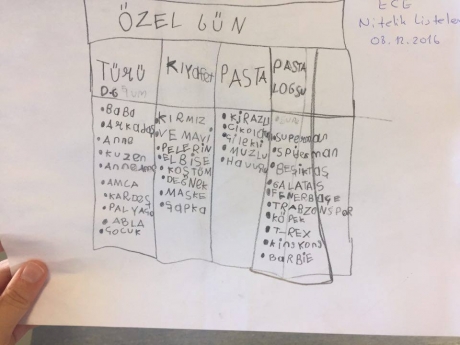 ECE
Nitelik Listeleri
03.12.2016
ÖZEL GÜN
TÜRÜ
KIYAFET
PASTA
PASTA
LOGSU
•BaBa
•Arkadaş
•Anne
•Kuzen
•Anneanne
•AMCA
•KARDAŞ
•PALYAÇO
•ABLA
•ÇOCUK
•KIRMIZ
VE MAVİ
•PELERİN
•ELBİSE
•KOSTÖM
•DEĞNEK
•MASKE
•Şapka
•KİRAZLI
•Çikolata
•Çilekli
•MUZLU
•Havuçlu
•Superman
•SPİderman
•BEŞİKTAŞ
•GALATAS
•FENERBAÇE
•TRABZONSPOR
•KÖPEK
•T-REX
•KİNSKONS
•BARBİE